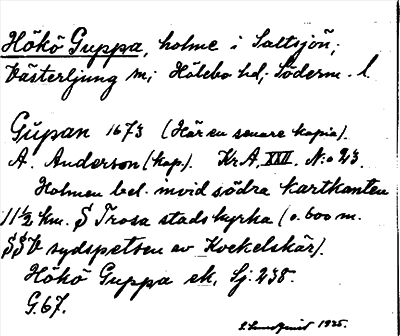 Hökö Guppa, holme i Saltsjön;
Västerljung sn; Hölebo hd; Söderm. l.
Gupan 1673 (Här en senare kopia).
A. Anderson (kop.). Kr A, XXV. N:o 23.
Holmen bel. invid södra kartkanten
11½ km. S Trosa stads kyrka (0.600 m.
SSV sydspetsen av Kockelskär).
Hökö Guppa ek. Sj. 238.
G.67.
1925.